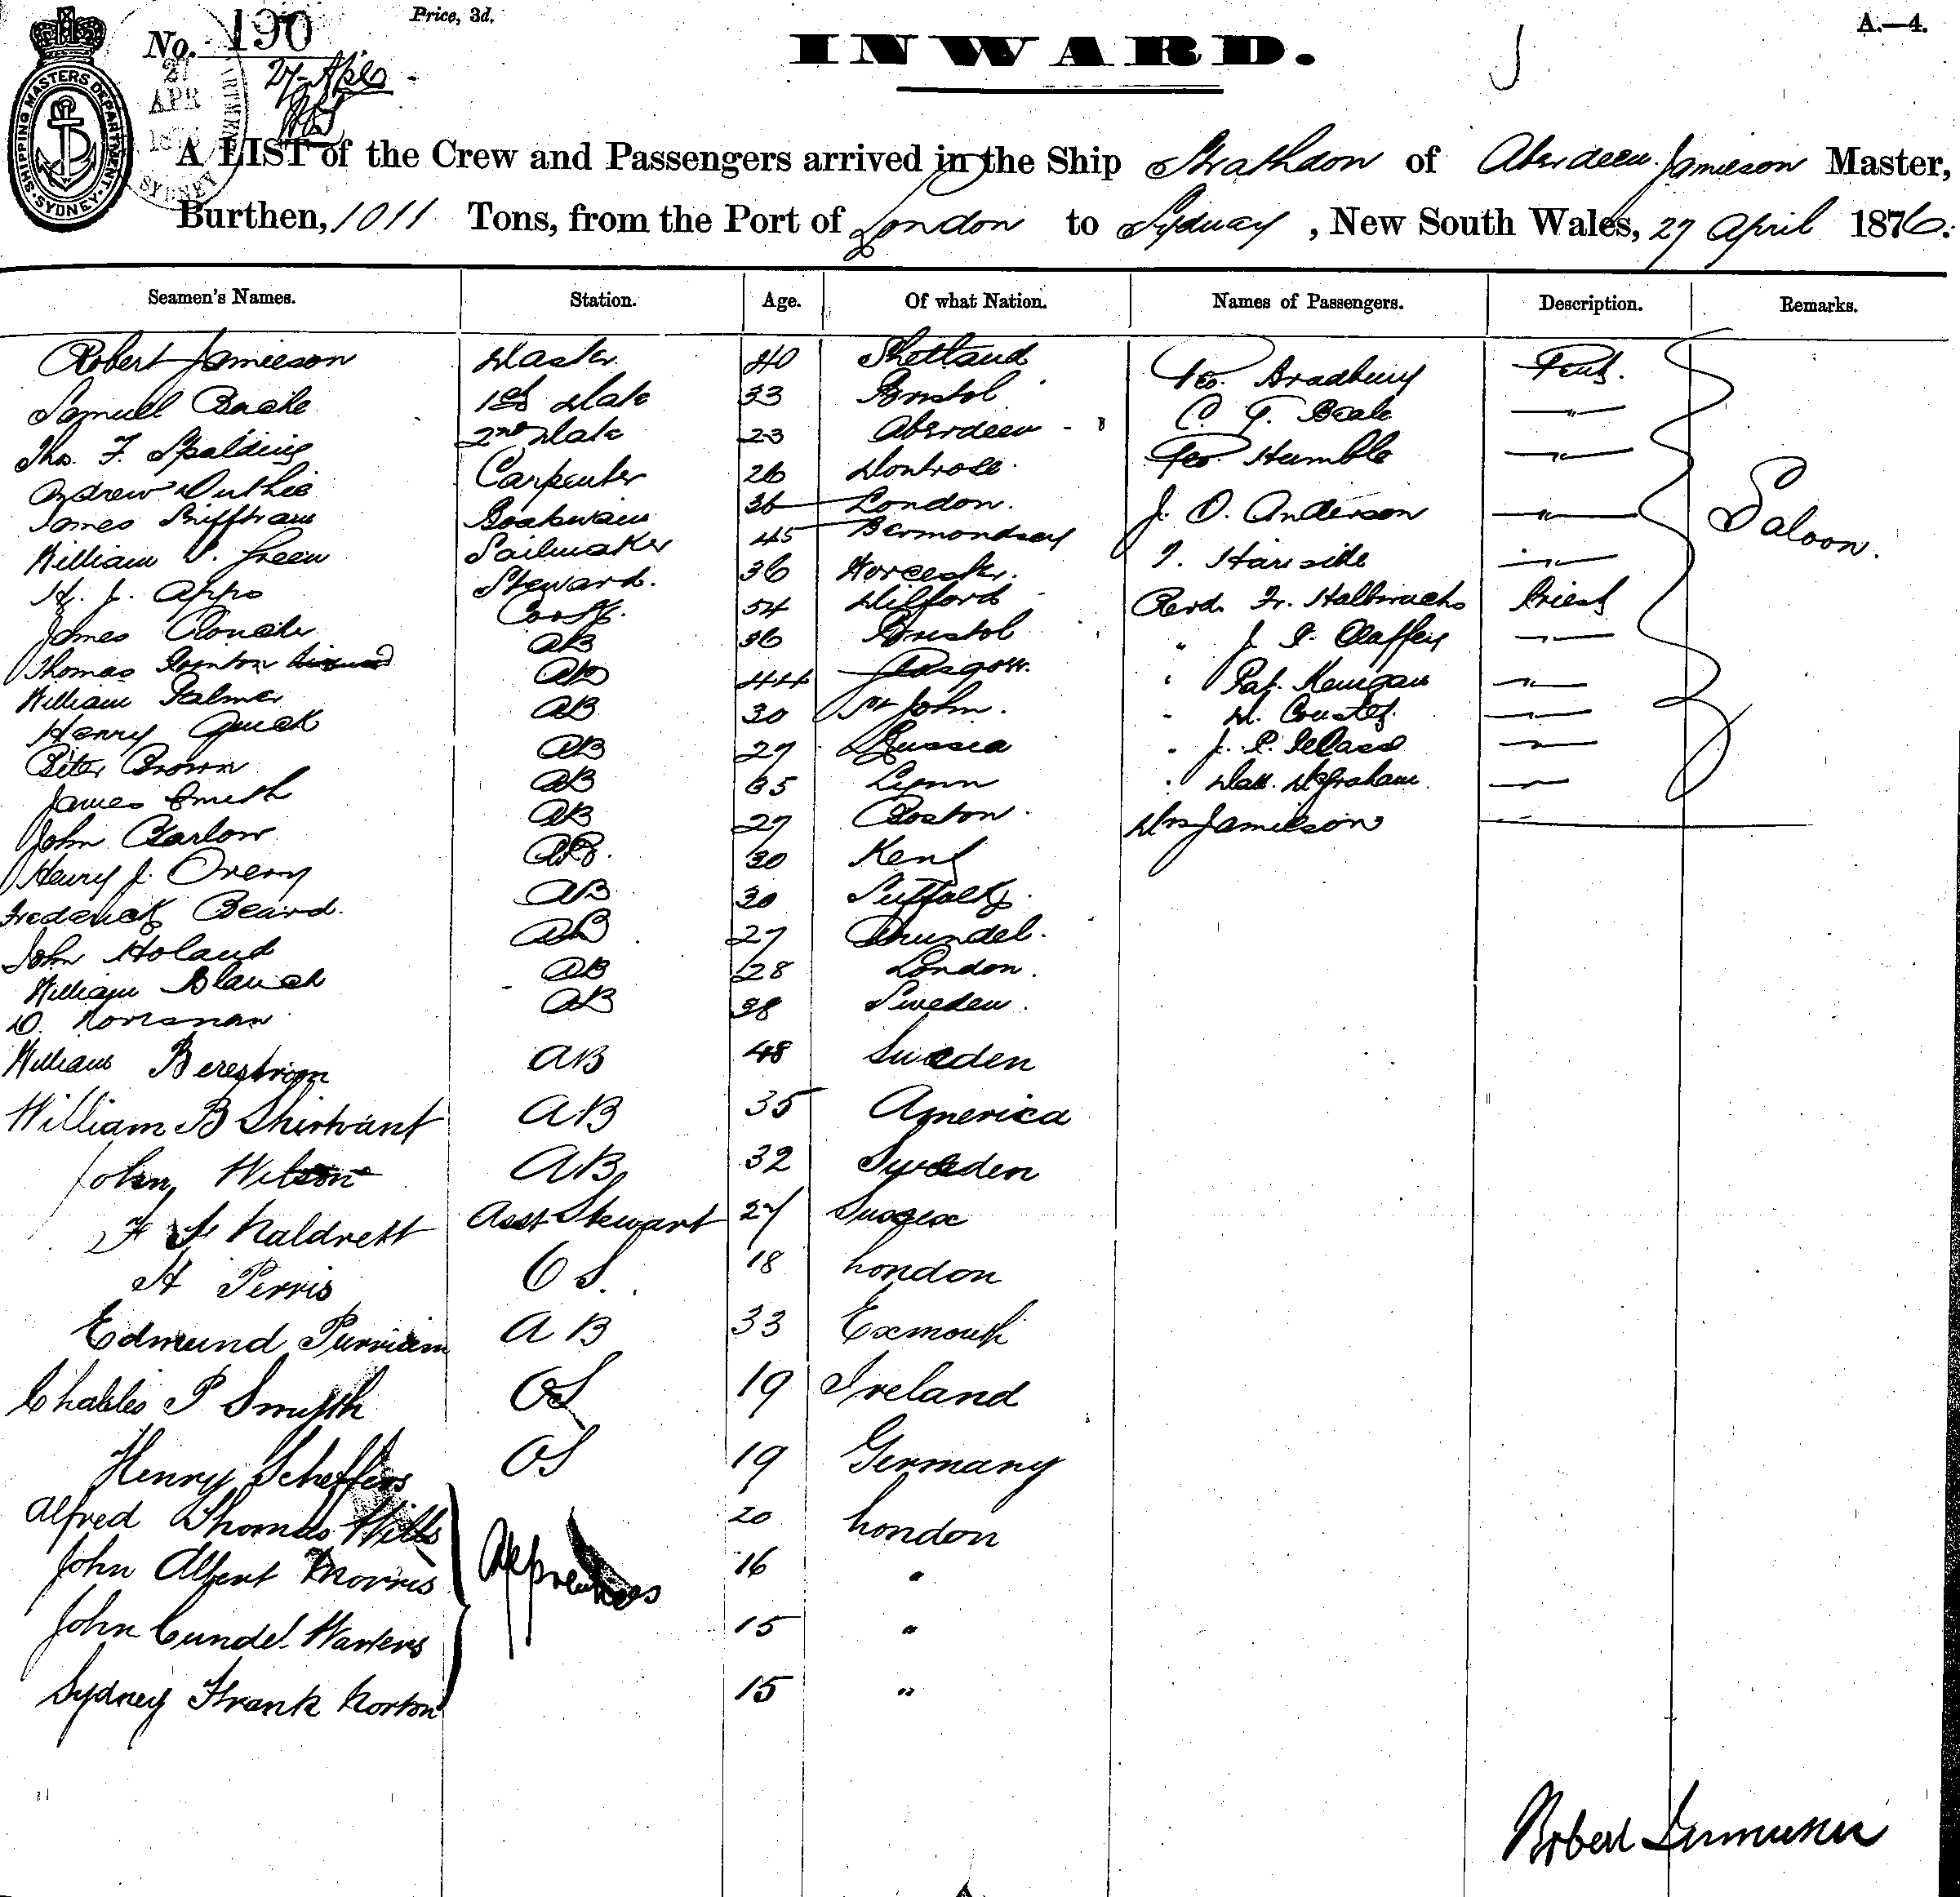 Price, 3d.
A.—4.
No. 190
INWARD.
27 APR 187
SYDNEY
SHIPPING MASTERS DEPARTMENT. SYDNEY.
A LIST of the Crew and Passengers arrived in the Ship Strathdon of Aberdeen Jamieson Master,
Burthen, 1011 Tons, from the Port of London to Sydney, New South Wales, 27 April 1876.
Seamen's Names. Station. Age. Of what Nation. Names of Passengers. Description. Remarks.
Robert Jamieson Master 40 Shetland Geo. Bradbury Gent.
Samuel 1st Mate 33 Bristol C. G. Beale "
Thos. F. Spalding 2nd Mate 23 Aberdeen Geo. Humble "
Andrew Duthie Carpenter 26 Montrose J. O. Anderson "
James Boatswain 36 London. "
William Green Sailmaker 45 Bermondsey Saloon.
H. J. Appo Steward. 36 Worcester. Revd. Fr. Priest
James Cook. 54 Milford " J. "
Thomas AB 36 Bristol " Pat. "
William Palmer AB 44 Glasgow. " "
Henry Quick AB 30 St John. " J. P. "
Peter Brown AB 27 Russia " "
James Smith AB 35 Lynn Mrs Jamieson
John Barlow AB 27 Boston.
Henry J. Overy AB. 30 Kent
Frederick Beard. AB 30 Suffolk.
John Holand AB 27 Arundel.
William AB 28 London.
AB 38 Sweden.
William Berestrom AB 48 Sweden
William B AB 35 America
John Wilson AB 32 Sweden
Naldrett Asst Stewart 27 Sussex
H Perris OS. 18 London
Edmund AB 33 Exmouth
Charles P Smyth OS 19 Ireland
Henry Scheffers OS 19 Germany
Alfred Thomas Wills Apprentices 20 London
John Albert Morris 16 "
John Cundel 15 "
Sydney Frank Norton 15 "
Robert Jamieson